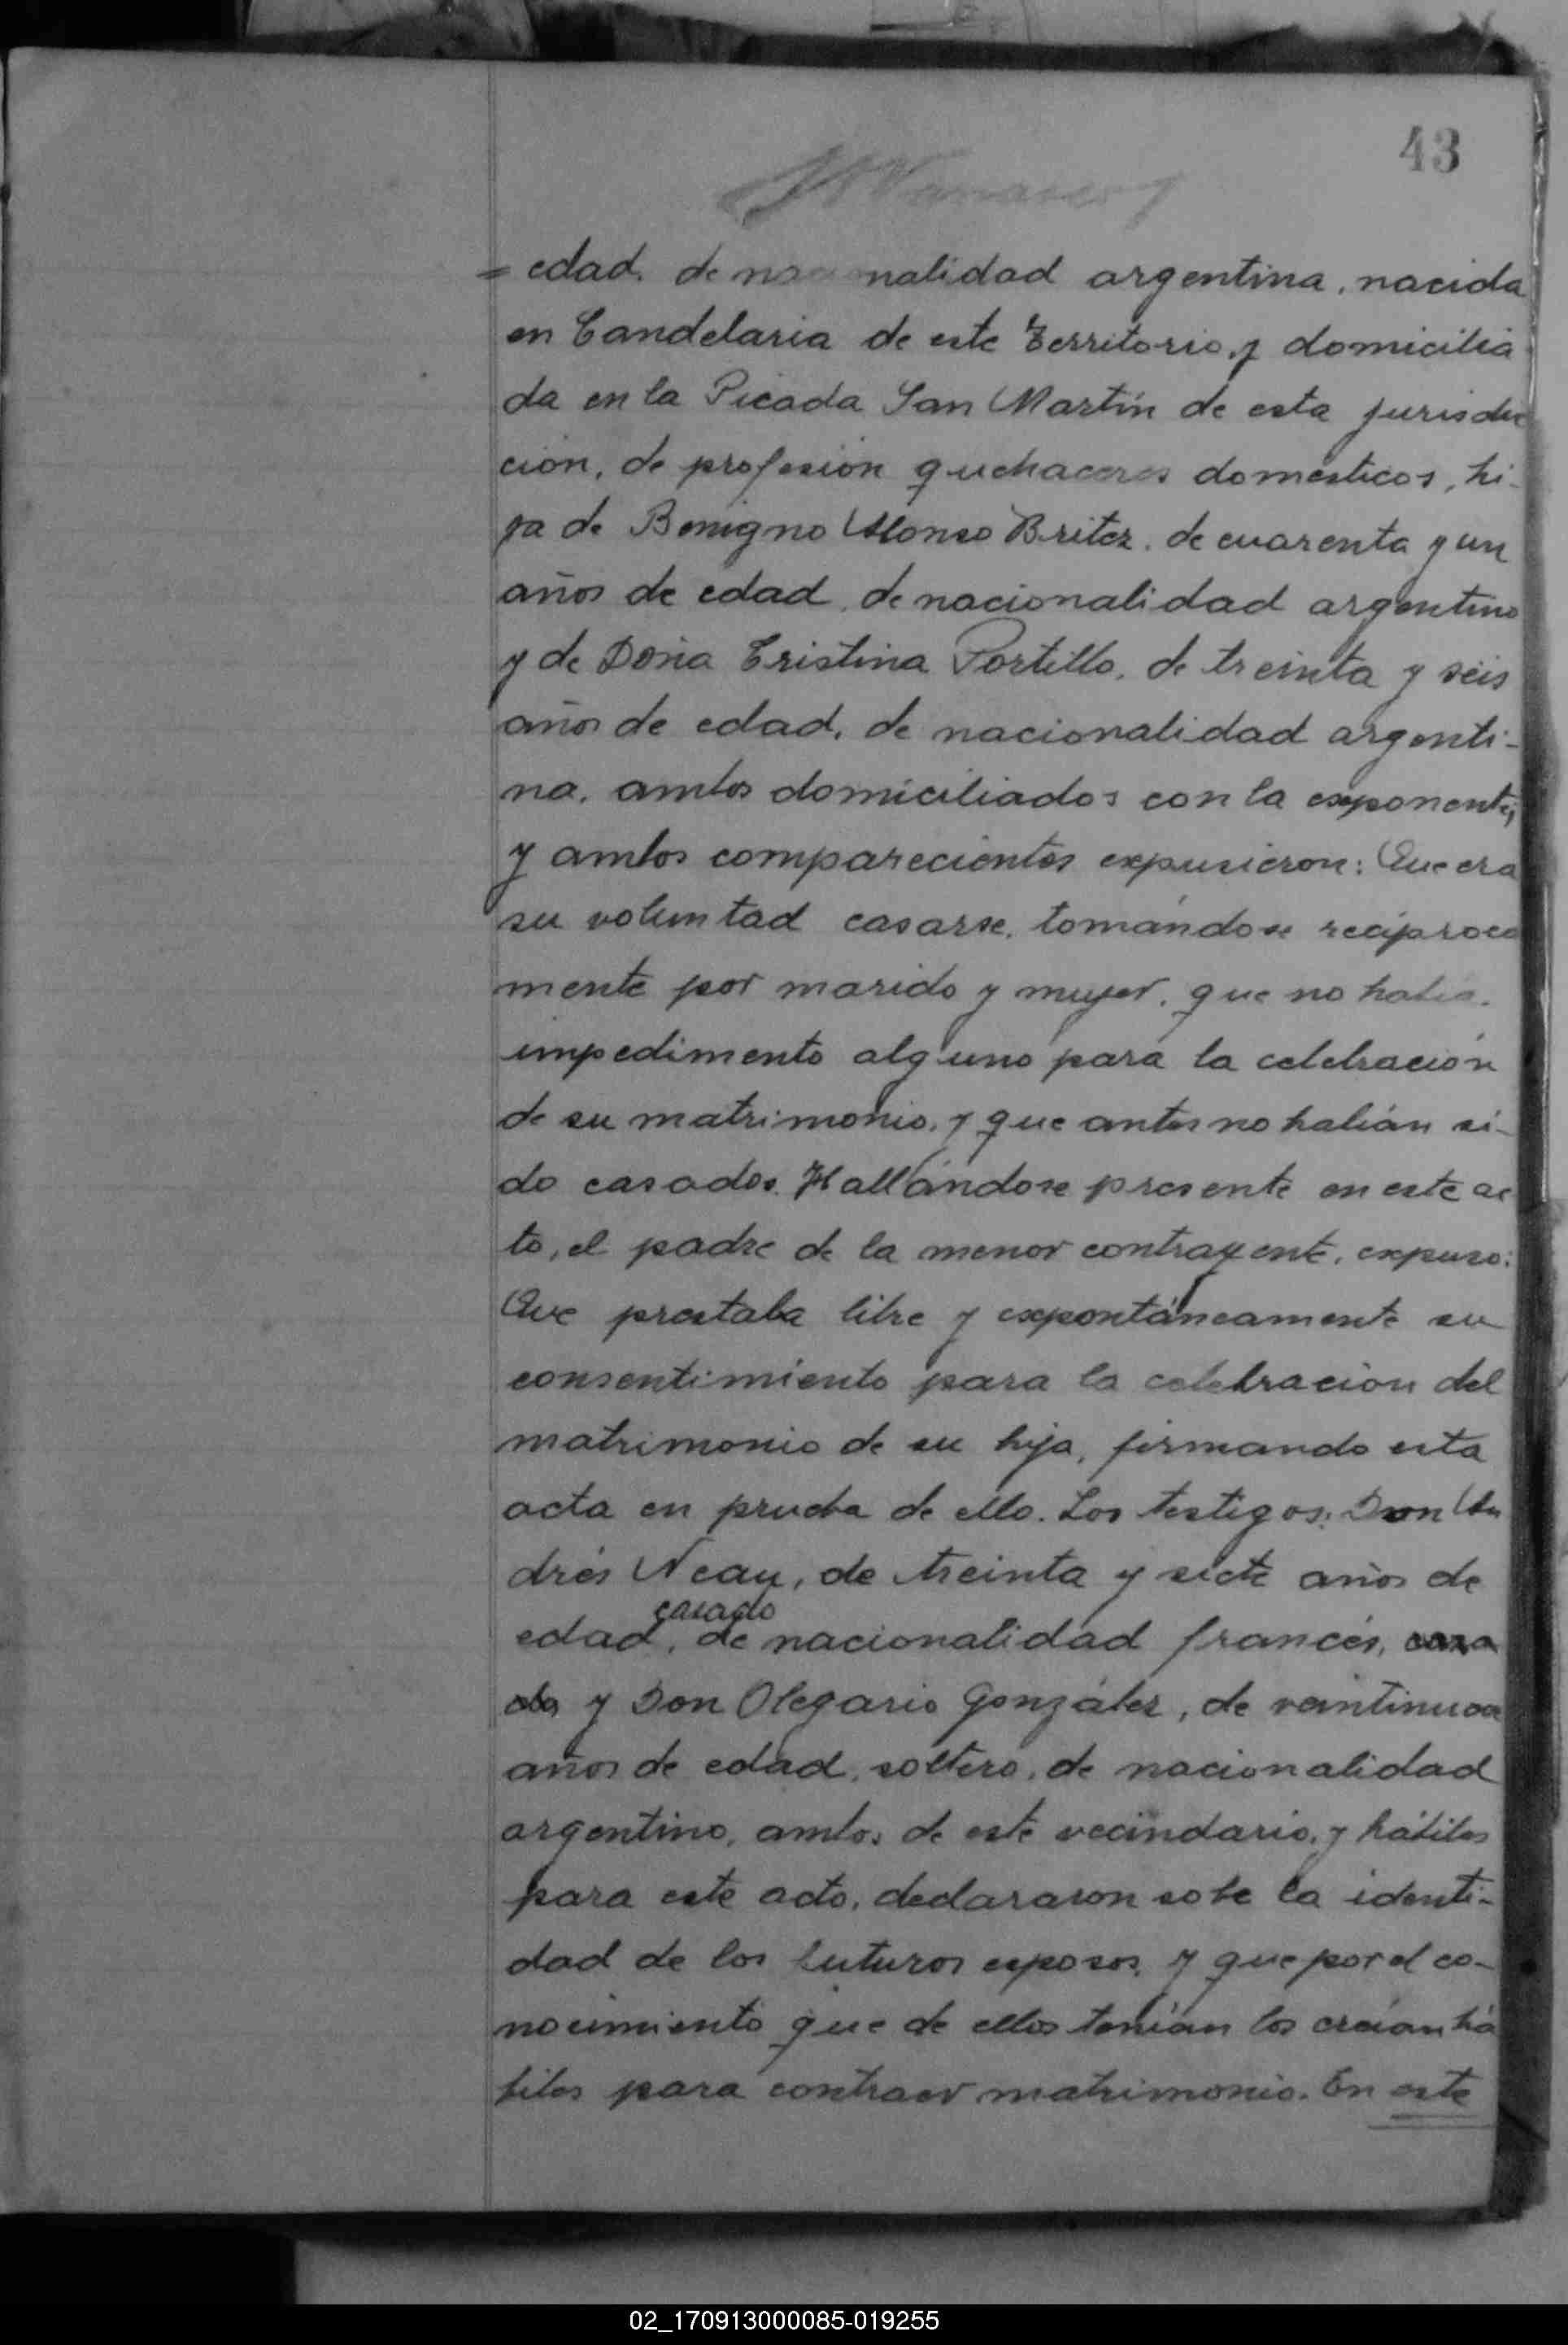 43
= edad. de nacionalidad argentina, nacida
en Candelaria de este Territorio, y domicilia
da en la Picada San Martín de esta jurisdic
ción, de profesión quehaceres domésticos, hi-
ja de Benigno Alonso Britez, de cuarenta y un
años de edad, de nacionalidad argentino
y de Doña Cristina Portillo, de treinta y seis
años de edad, de nacionalidad argenti-
na, ambos domiciliados con la exponente;
y ambos comparecientes expusieron: Que era
su voluntad casarse, tomándose recíproca
mente por marido y mujer, que no había
impedimento alguno para la celebración
de su matrimonio, y que antes no habían si-
do casados. Hallándose presente en este ac
to, el padre de la menor contrayente, expuso:
Que prestaba libre y expontáneamente su
consentimiento para la celebración del
matrimonio de su hija, firmando esta
acta en prueba de ello. Los testigos: Don An
drés Neau, de treinta y siete años de
casado
edad, de nacionalidad francés, casa
do y Don Olegario González, de veintinueve
años de edad, soltero, de nacionalidad
argentino, ambos de este vecindario, y hábiles
para este acto, declararon sobe la identi-
dad de los futuros esposos, y que por el co-
nocimiento que de ellos tenían los creían há
biles para contraer matrimonio. En este
02_170913000085-019255